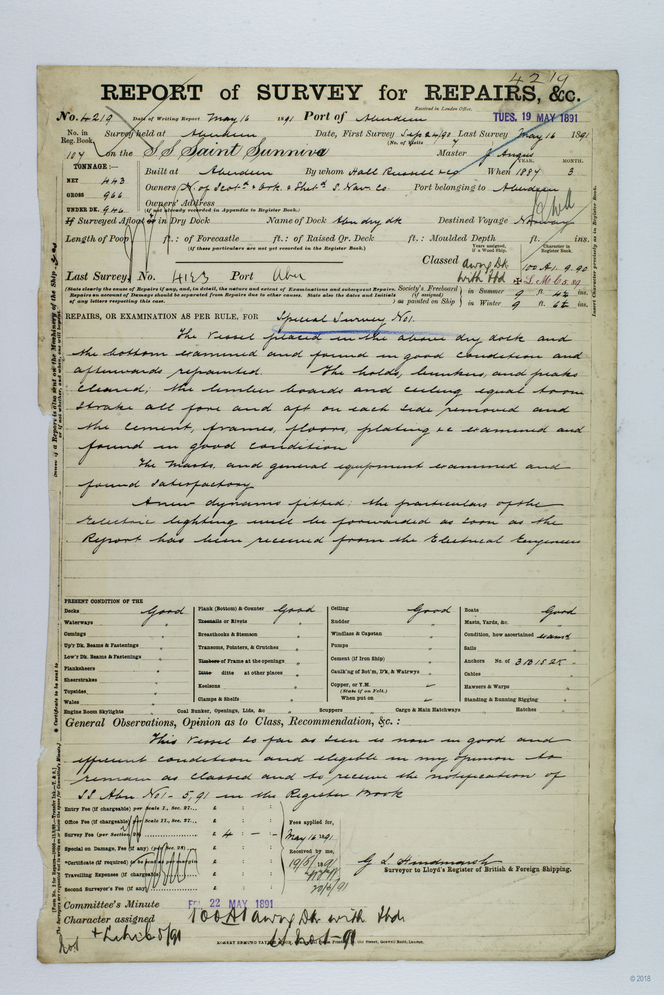 4219
REPORT of SURVEY for REPAIRS, &c.
Received in London Office.
No. 4219 Date of Writing Report May 16 1891 Port of Aberdeen TUES. 19 MAY 1891
No. in Reg. Book. Survey held at Aberdeen Date, First Survey Sep 24/90 Last Survey May 16 1891
(No. of Visits 7
107 on the SS Saint Sunniva Master J Angus
TONNAGE:— YEAR. MONTH.
NET 443 Built at Aberdeen By whom Hall Russell & Co When 1887 3
GROSS 966 Owners N. of Scotd & Ork. & Shetd S. Nav. Co Port belonging to Aberdeen
UNDER DK. 946 Owners' Address
(if not already recorded in Appendix to Register Book.)
If Surveyed Afloat or in Dry Dock Name of Dock Abn dry dk Destined Voyage Norway
Length of Poop ft.: of Forecastle ft.: of Raised Qr. Deck ft.: Moulded Depth ft. ins.
(if these particulars are not yet recorded in the Register Book.)
Years assigned, if a Wood Ship. Character in Register Book.
Classed awng Dk with Fhd 100 A1. 9.90
Last Survey, No. 4153 Port Abn L.M.C. 5.89
(State clearly the cause of Repairs if any, and, in detail, the nature and extent of Examinations and subsequent Repairs.
Repairs on account of Damage should be separated from Repairs due to other causes. State also the dates and Initials
of any letters respecting this case.)
Society's Freeboard (if assigned) as painted on Ship in Summer 9 ft ins.
in Winter 9 ft. ins.
REPAIRS, OR EXAMINATION AS PER RULE, FOR Special Survey No 1.
The Vessel placed in the above dry dock and
the bottom examined and found in good condition and
afterwards repainted. The holds, bunkers, and peaks
cleared; the limber boards and ceiling equal to one
strake all fore and aft on each side removed and
the cement, frames, floors, plating &c examined and
found in good condition
The Masts, and general equipment examined and
found satisfactory
A new dynamo fitted: the particulars of the
Electric lighting will be forwarded as soon as the
Report has been received from the Electrical Engineers
PRESENT CONDITION OF THE
Decks Good
Waterways "
Comings "
Up'r Dk. Beams & Fastenings "
Low'r Dk. Beams & Fastenings "
Planksheers
Sheerstrakes "
Topsides "
Wales "
Engine Room Skylights
Plank (Bottom) & Counter Good
Treenails or Rivets "
Breasthooks & Stemson "
Transoms, Pointers, & Crutches "
Timbers or Frame at the openings "
Ditto ditto at other places "
Keelsons "
Clamps & Shelfs "
Coal Bunker, Openings, Lids, &c
Ceiling Good
Rudder "
Windlass & Capstan "
Pumps "
Cement (if Iron Ship) "
Caulk'ng of Bot'm, D'k, & Watrwys "
Copper, or Y.M.
(State if on Felt.)
When put on
Scuppers Cargo & Main Hatchways
Boats Good
Masts, Yards, &c. "
Condition, how ascertained
Sails "
Anchors No. of 3 B 1 S 2 K
Cables "
Hawsers & Warps "
Standing & Running Rigging "
Hatches "
General Observations, Opinion as to Class, Recommendation, &c.:
This Vessel so far as seen is now in good and
efficient condition and eligible in my opinion to
remain as classed and to receive the notification of
SS Abn No 1 - 5,91 in the Register Book
Entry Fee (if chargeable) per Scale I., Sec. 27... £ : :
Office Fee (if chargeable) per Scale II., Sec. 27... £ : :
Survey Fee (per Section 28) £ 4 : - : -
Special on Damage, Fee (if any) (per Sec. 28) £ : :
Certificate (if required) to be sent as per margin £ : :
Travelling Expenses (if chargeable) £ : :
Second Surveyor's Fee (if any) £ : :
Fees applied for,
May 16 1891
Received by me,
19/5/1891
G L Hindmarsh
Surveyor to Lloyd's Register of British & Foreign Shipping.
Committee's Minute FRI. 22 MAY 1891
Character assigned 100 A1 awng Dk with Fhd
© 2018